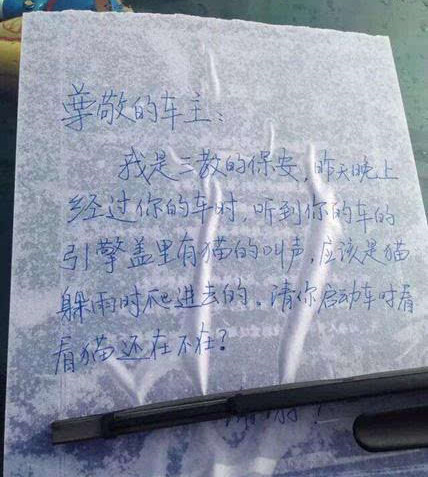 尊敬的车主:
我是三教的保安,昨天晚上
经过你的车时,听到你的车的
引擎盖里有猫的叫声,应该是猫
躲雨时爬进去的。请你启动车时看
看猫还在不在?
谢谢!